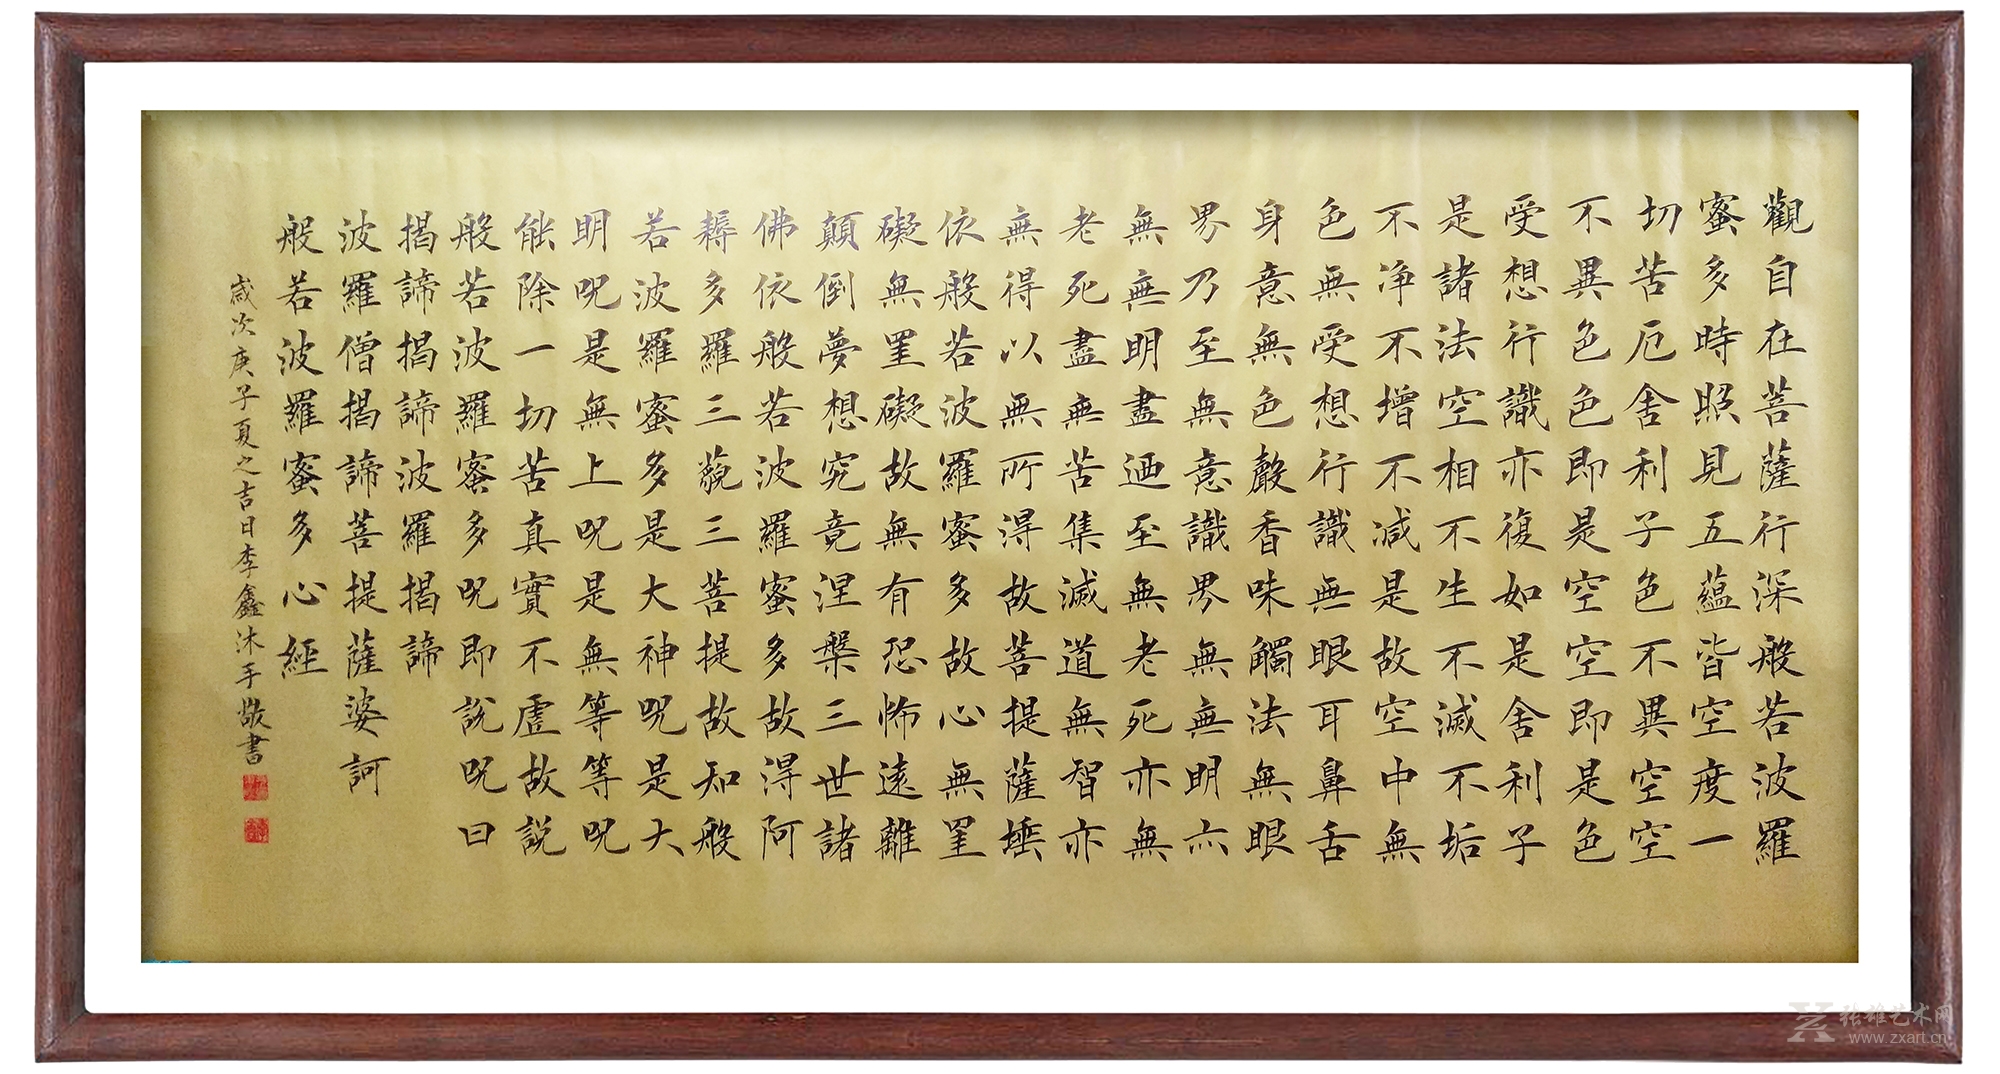 觀自在菩薩行深般若波羅
蜜多時照見五蘊皆空度一
切苦厄舍利子色不異空空
不異色色即是空空即是色
受想行識亦復如是舍利子
是諸法空相不生不滅不垢
不净不增不減是故空中無
色無受想行識無眼耳鼻舌
身意無色聲香味觸法無眼
界乃至無意識界無無明亦
無無明盡迺至無老死亦無
老死盡無苦集滅道無智亦
無得以無所得故菩提薩埵
依般若波羅蜜多故心無罣
礙無罣礙故無有恐怖遠離
顛倒夢想究竟涅槃三世諸
佛依般若波羅蜜多故得阿
耨多羅三藐三菩提故知般
若波羅蜜多是大神呪是大
明呪是無上呪是無等等呪
能除一切苦真實不虛故説
般若波羅蜜多呪即説呪曰
揭諦揭諦波羅揭諦
波羅僧揭諦菩提薩婆訶
般若波羅蜜多心經
歲次庚子夏之吉日李鑫沐手敬書
张雄艺术网
www.zxart.cn